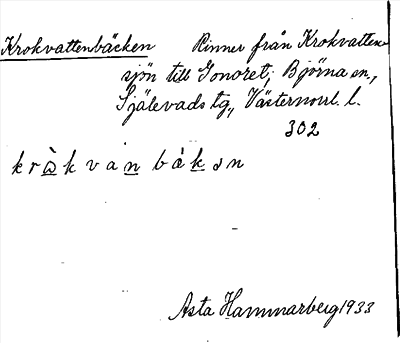 Krokvattenbäcken Rinner från Krokvatten-
sjön till Gonoret; Björna sn.,
Själevads tg., Västernorrl. l.
302
kròkvanbäkən
Asta Hammarberg 1933